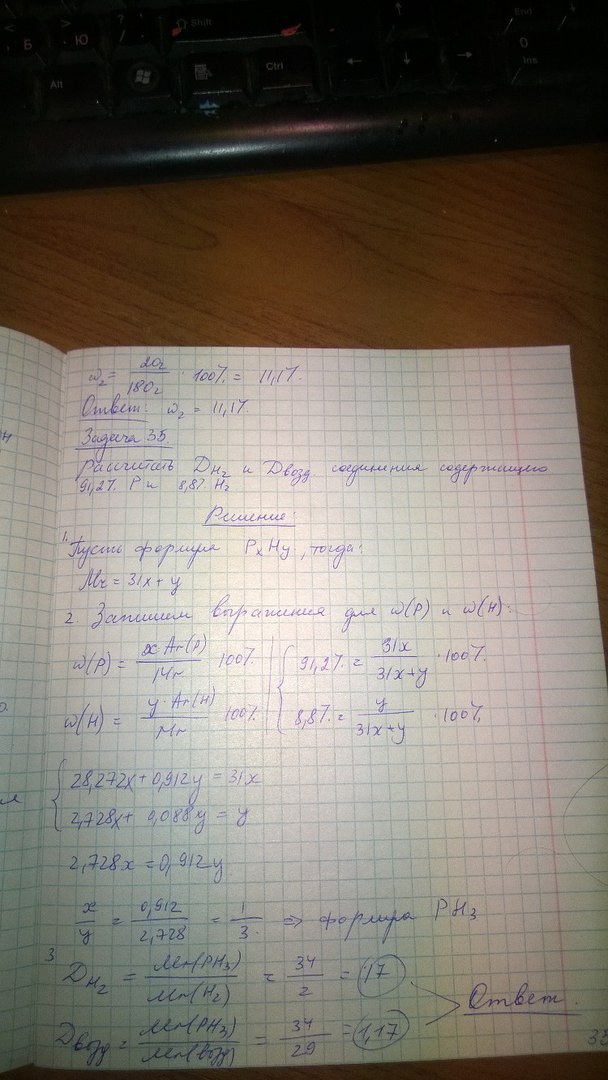 Б
Ю
Shift
End
Alt
Ctrl
0
Ins
ω₂ = 20г/180г · 100% = 11,1%.
Ответ: ω₂ = 11,1%.
Задача 35.
Расчитать Dн₂ и Dвозд соединения содержащего
91,2% P и 8,8% H₂
Решение:
1. Пусть формула PxHy, тогда:
Mr = 31x + y
2 Запишем выражения для ω(P) и ω(H):
ω(P) = x·Ar(P)/Mr 100% 91,2% = 31x/(31x+y) ·100%.
ω(H) = y·Ar(H)/Mr 100% 8,8% = y/(31x+y) ·100%
28,272x + 0,912y = 31x
2,728x + 0,088y = y
2,728x = 0,912y
x/y = 0,912/2,728 = 1/3 ⇒ формула PH₃
3 DH₂ = Mr(PH₃)/Mr(H₂) = 34/2 = 17
Ответ.
Dвозд = Mr(PH₃)/Mr(возд) = 34/29 = 1,17